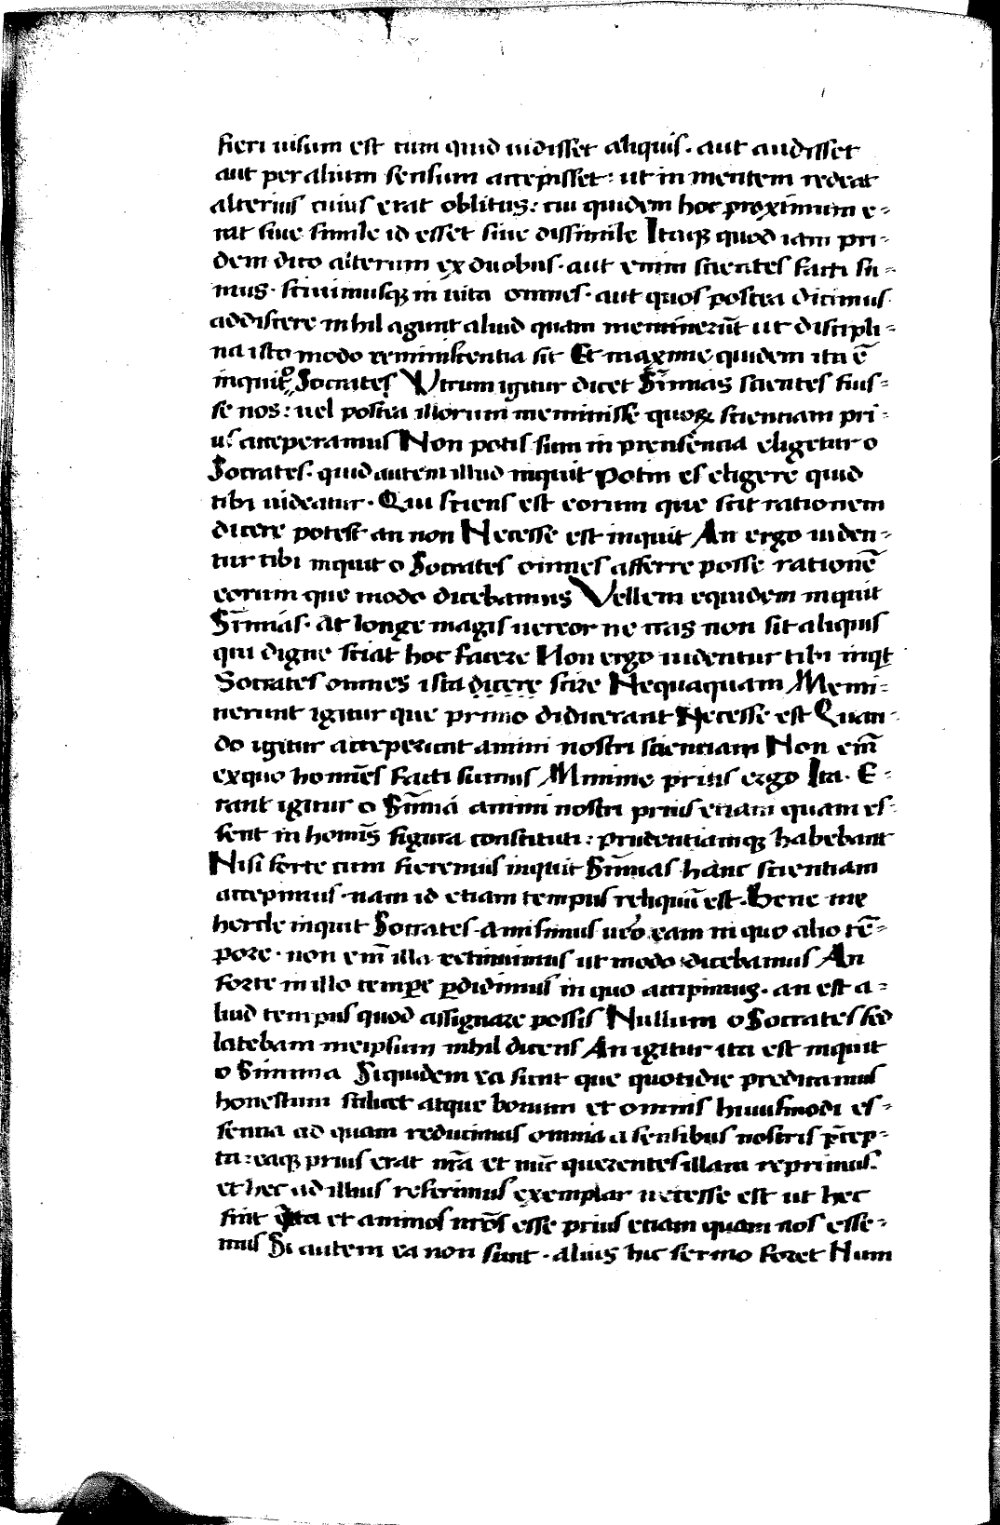 fieri uisum est cum quid uidisset aliquis. aut audisset
aut per alium sensum accepisset: ut in mentem redeat
alterius cuius erat oblitus: cui quidem hoc proximum e-
rat siue simile id esset siue dissimile Itaq; quod iam pri-
dem dico alterum ex duobus. aut enim scientes facti su-
mus. sciuimusq; in uita omnes. aut quos postea dicimus
addiscere nihil agunt aliud quam meminerūt ut discipli-
na isto modo reminiscentia sit Et maxime quidem ita ē
inquit o Socrates Vtrum igitur dicet Sim̄ias scientes fuis-
se nos: uel postea illorum meminisse quoꝝ scientiam pri-
us acceperamus Non potis sum in presencia eligere o
Socrates. quid autem illud inquit Potin es eligere quid
tibi uideatur. Qui sciens est eorum que scit rationem
dicere potest an non Necesse est inquit An ergo uiden-
tur tibi inquit o Socrates omnes afferre posse rationē
eorum que modo dicebamus Vellem equidem inquit
Sim̄ias. at longe magis uereor ne cras non sit aliquis
qui digne sciat hoc facere Non ergo uidentur tibi inqt
Socrates omnes ista dicere scire Nequaquam Memi-
nerunt igitur que primo didicerant Necesse est Quan-
do igitur acceperunt animi nostri scientiam Non em̄
ex quo homines facti sumus Minime prius ergo Ita. E-
rant igitur o Sim̄ia animi nostri prius etiam quam es-
sent in homis̄ figura constituti: prudentiamq; habebant
Nisi forte cum fieremus inquit Sim̄ias hanc scientiam
accepimus. nam id etiam tempus reliquū est. Bene me
hercle inquit Socrates. amisimus uero eam in quo alio tē-
pore. non em̄ illa retinuimus ut modo dicebamus An
forte in illo tempore perdidimus in quo accipimus. an est a-
liud tempus quod assignare possis Nullum o Socrates sed
latebam meipsum nihil dicens An igitur ita est inquit
o Simmia Siquidem ea sunt que quotidie predicamus
honestum scilicet atque bonum et omnis huiusmodi es-
sentia ad quam reducimus omnia a sensibus nostris p̄cep-
ta: eaq; prius erat nr̄a et nūc querentes illam reprimus.
et hec ad illius referimus exemplar necesse est ut hec
sint ita et animos nrōs esse prius etiam quam nos esse-
mus Si autem ea non sunt. alius hic sermo foret Num